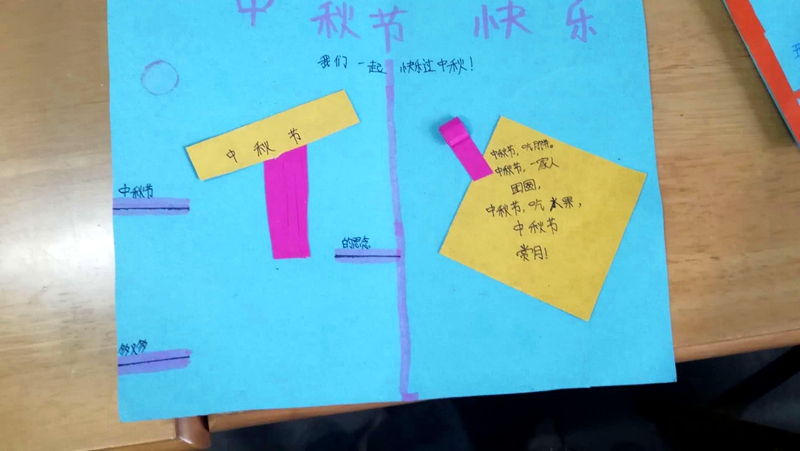 中秋节快乐
我们一起快乐过中秋!
中秋节
中秋节,吃月饼。
中秋节,一家人
团圆,
中秋节,吃水果,
中秋节
赏月!
中秋节
的思念